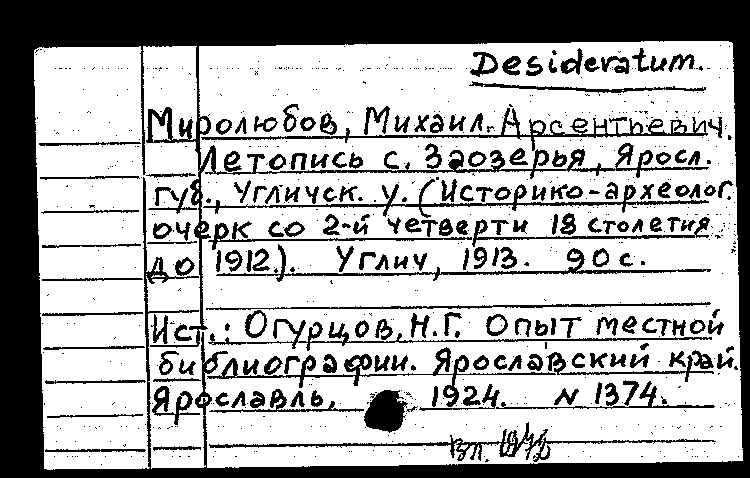 Desideratum.
Миролюбов, Михаил Арсентьевич.
Летопись с. Заозерья, Яросл.
губ., Угличск. у. (Историко-археолог.
очерк со 2-й четверти 18 столетия
до 1912.). Углич, 1913. 90 с.
Ист.: Огурцов, Н.Г. Опыт местной
библиографии. Ярославский край.
Ярославль, 1924. N 1374.
Вл.